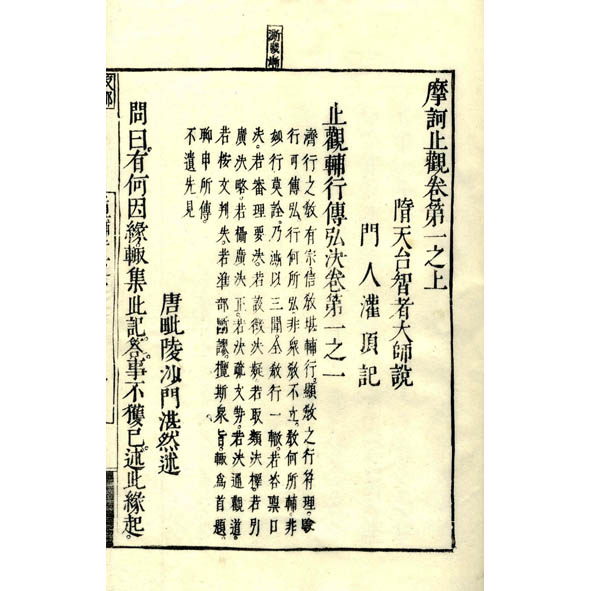 摩訶止觀卷第一之上
隋天台智者大師說
門人灌頂記
止觀輔行傳弘決卷第一之一
行之教有宗信教堪輔行。顯教之行符理。
行可傳弘行何所弘。非衆教不立。教何所輔。非
行莫詮。乃以三聞全教行一轍。若咨稟口
決。若審理要決。若設徵決疑。若取類決擇。若別
廣決略。若攝廣決正。若決疏文勢。若決通觀道。
若按文判失。若準部謬。攬斯衆旨輒爲首題。
聊申所傳。
不遺先見
唐毗陵沙門湛然述
問曰。有何因緣輒集此記。答。事不獲已。述此緣起。